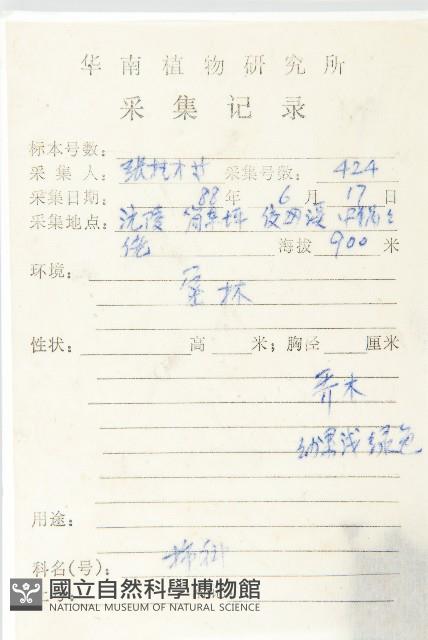 华南植物研究所
采集记录
标本号数:
采集人: 张桂才 采集号数: 424
采集日期: 88年 6月 17日
采集地点: 沅陵
海拔 900 米
环境: 密林
性状: 高 米; 胸径 厘米
乔木
幼果浅绿色
用途:
科名(号): 柿科
國立自然科學博物館
NATIONAL MUSEUM OF NATURAL SCIENCE